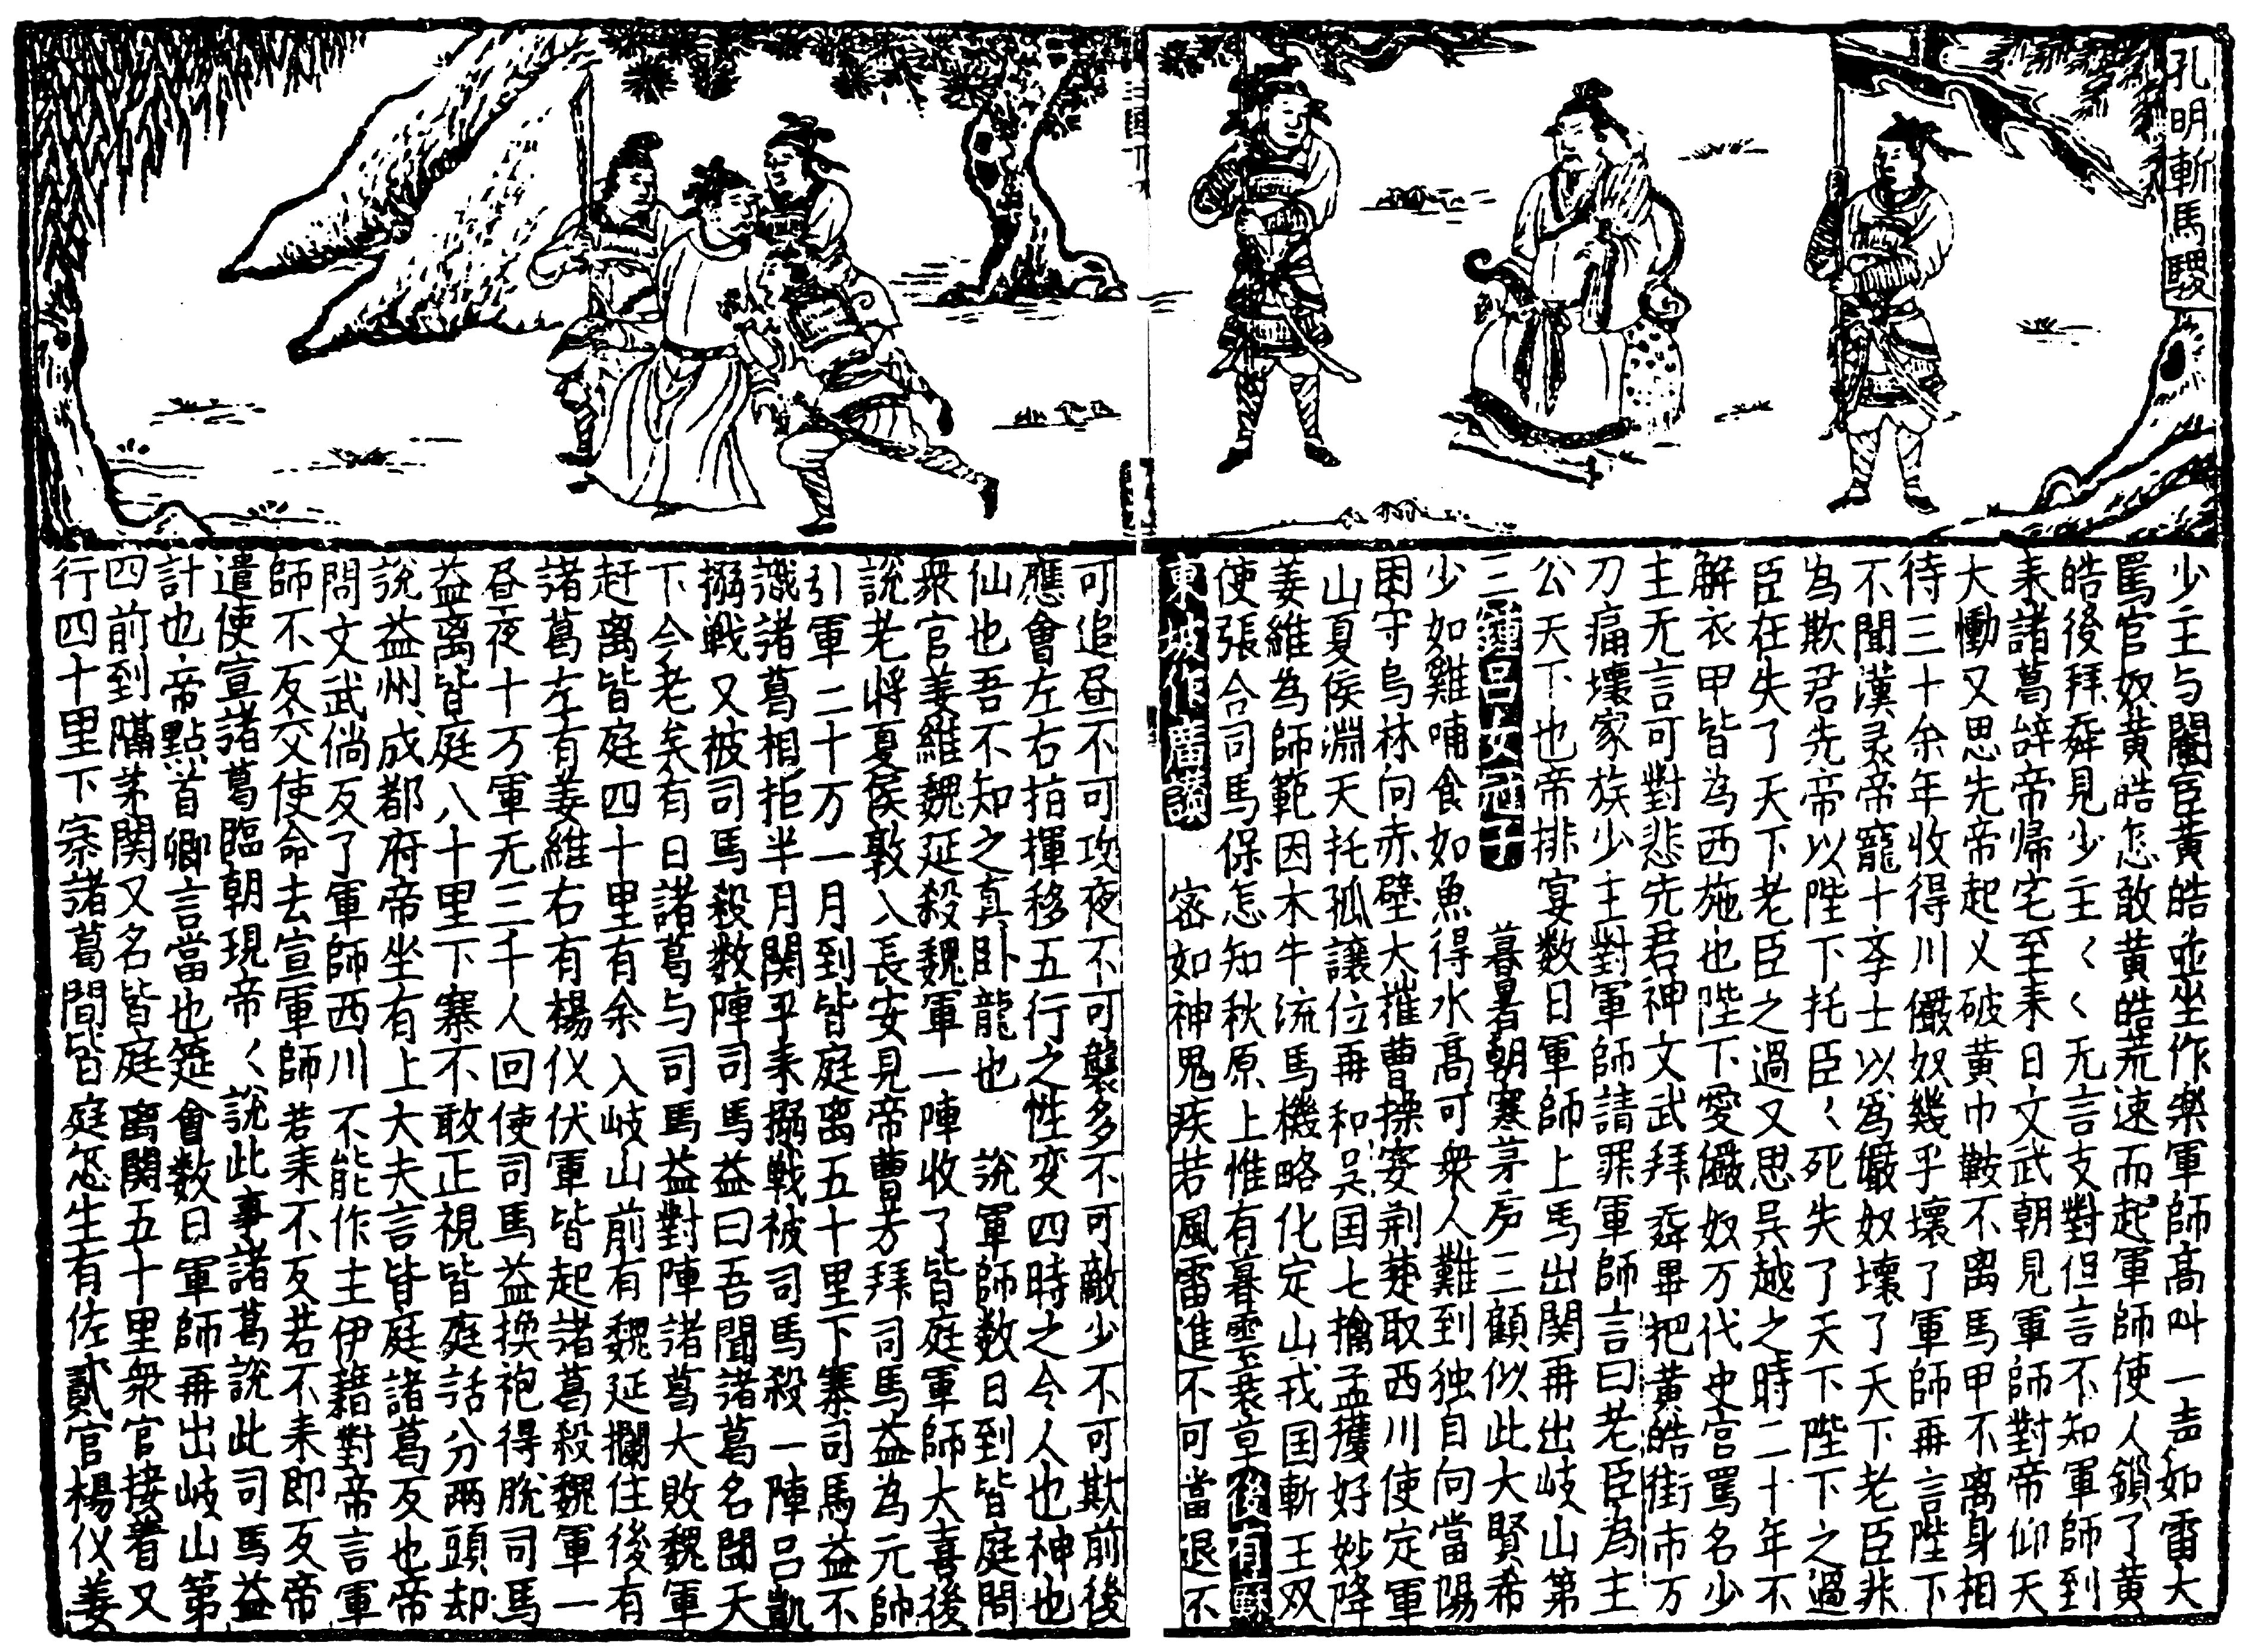 孔明斬馬驟
少主与閹臣黃皓並坐作楽軍師高叫一声如雷大
罵官奴黃皓怎敢黃皓荒速而起軍師使人鎖了黃
皓後拜舜見少主〻〻无言支對但言不知軍師到
耒諸葛辞帝帰宅至耒日文武朝見軍師對帝仰天
大慟又思先帝起义破黃巾鞍不离馬甲不离身相
待三十余年收得川儼奴幾乎壞了軍師再言陛下
不聞漢灵帝寵十李士以為儼奴壞了天下老臣非
為欺君先帝以陛下托臣〻死失了天下陛下之過
臣在失了天下老臣之過又思吳越之時二十年不
解衣甲皆為西施也陛下愛儼奴万代史官罵名少
主无言可對悲先君神文武拜舜畢把黃皓街市万
刀痛壞家族少主對軍師請罪軍師言曰老臣為主
公天下也帝排宴数日軍師上馬出関再出岐山第
三 暮暑朝寒茅庐三顧似此大賢希
少如雞哺食如魚得水高可衆人難到独自向當陽
困守烏林向赤壁大摧曹操安荆楚取西川使定軍
山夏侯淵天托孤讓位再和吳国七擒孟獲好妙降
姜維為師範因木牛流馬機略化定山戎国斬王双
使張合司馬保怎知秋原上惟有暮雲衰草後有蘇
東坡作廟讃 密如神鬼疾若風雷進不可當退不
可追昼不可攻夜不可襲多不可敵少不可欺前後
應會左右指揮移五行之性变四時之令人也神也
仙也吾不知之真卧龍也 說軍師数日到皆庭問
衆官姜維魏延殺魏軍一陣收了皆庭軍師大喜後
說老将夏侯敦入長安見帝曹芳拜司馬益為元帥
引軍二十万一月到皆庭离五十里下寨司馬益不
識諸葛相拒半月関平耒搦戦被司馬殺一陣呂凱
搦戦又被司馬殺数陣司馬益曰吾聞諸葛名聞天
下今老矣有日諸葛与司馬益對陣諸葛大敗魏軍
赶离皆庭四十里有余入岐山前有魏延攔住後有
諸葛左有姜維右有楊仪伏軍皆起諸葛殺魏軍一
昼夜十万軍无三千人回使司馬益換袍得脫司馬
益离皆庭八十里下寨不敢正視皆庭話分兩頭却
說益州成都府帝坐有上大夫言皆庭諸葛反也帝
問文武倘反了軍師西川不能作主伊籍對帝言軍
師不反交使命去宣軍師若耒不反若不耒即反帝
遣使宣諸葛臨朝現帝〻說此事諸葛說此司馬益
計也帝點首卿言當也筵會数日軍師再出岐山第
四前到隔茅関又名皆庭离関五十里衆官接着又
行四十里下寨諸葛間皆庭怎生有佐貳官楊仪姜